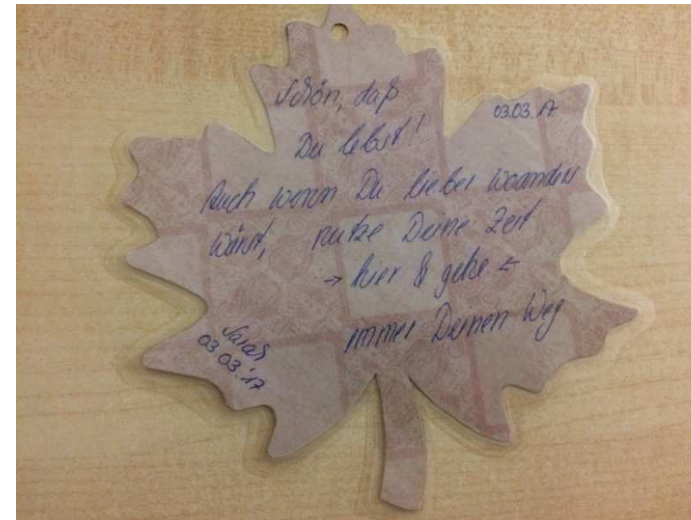 Schön, daß
03.03.17
Du lebst!
Auch wenn Du lieber woanders
wärst, nutze Deine Zeit
→ hier & gehe ←
immer Deinen Weg
Sarah
03.03.'17